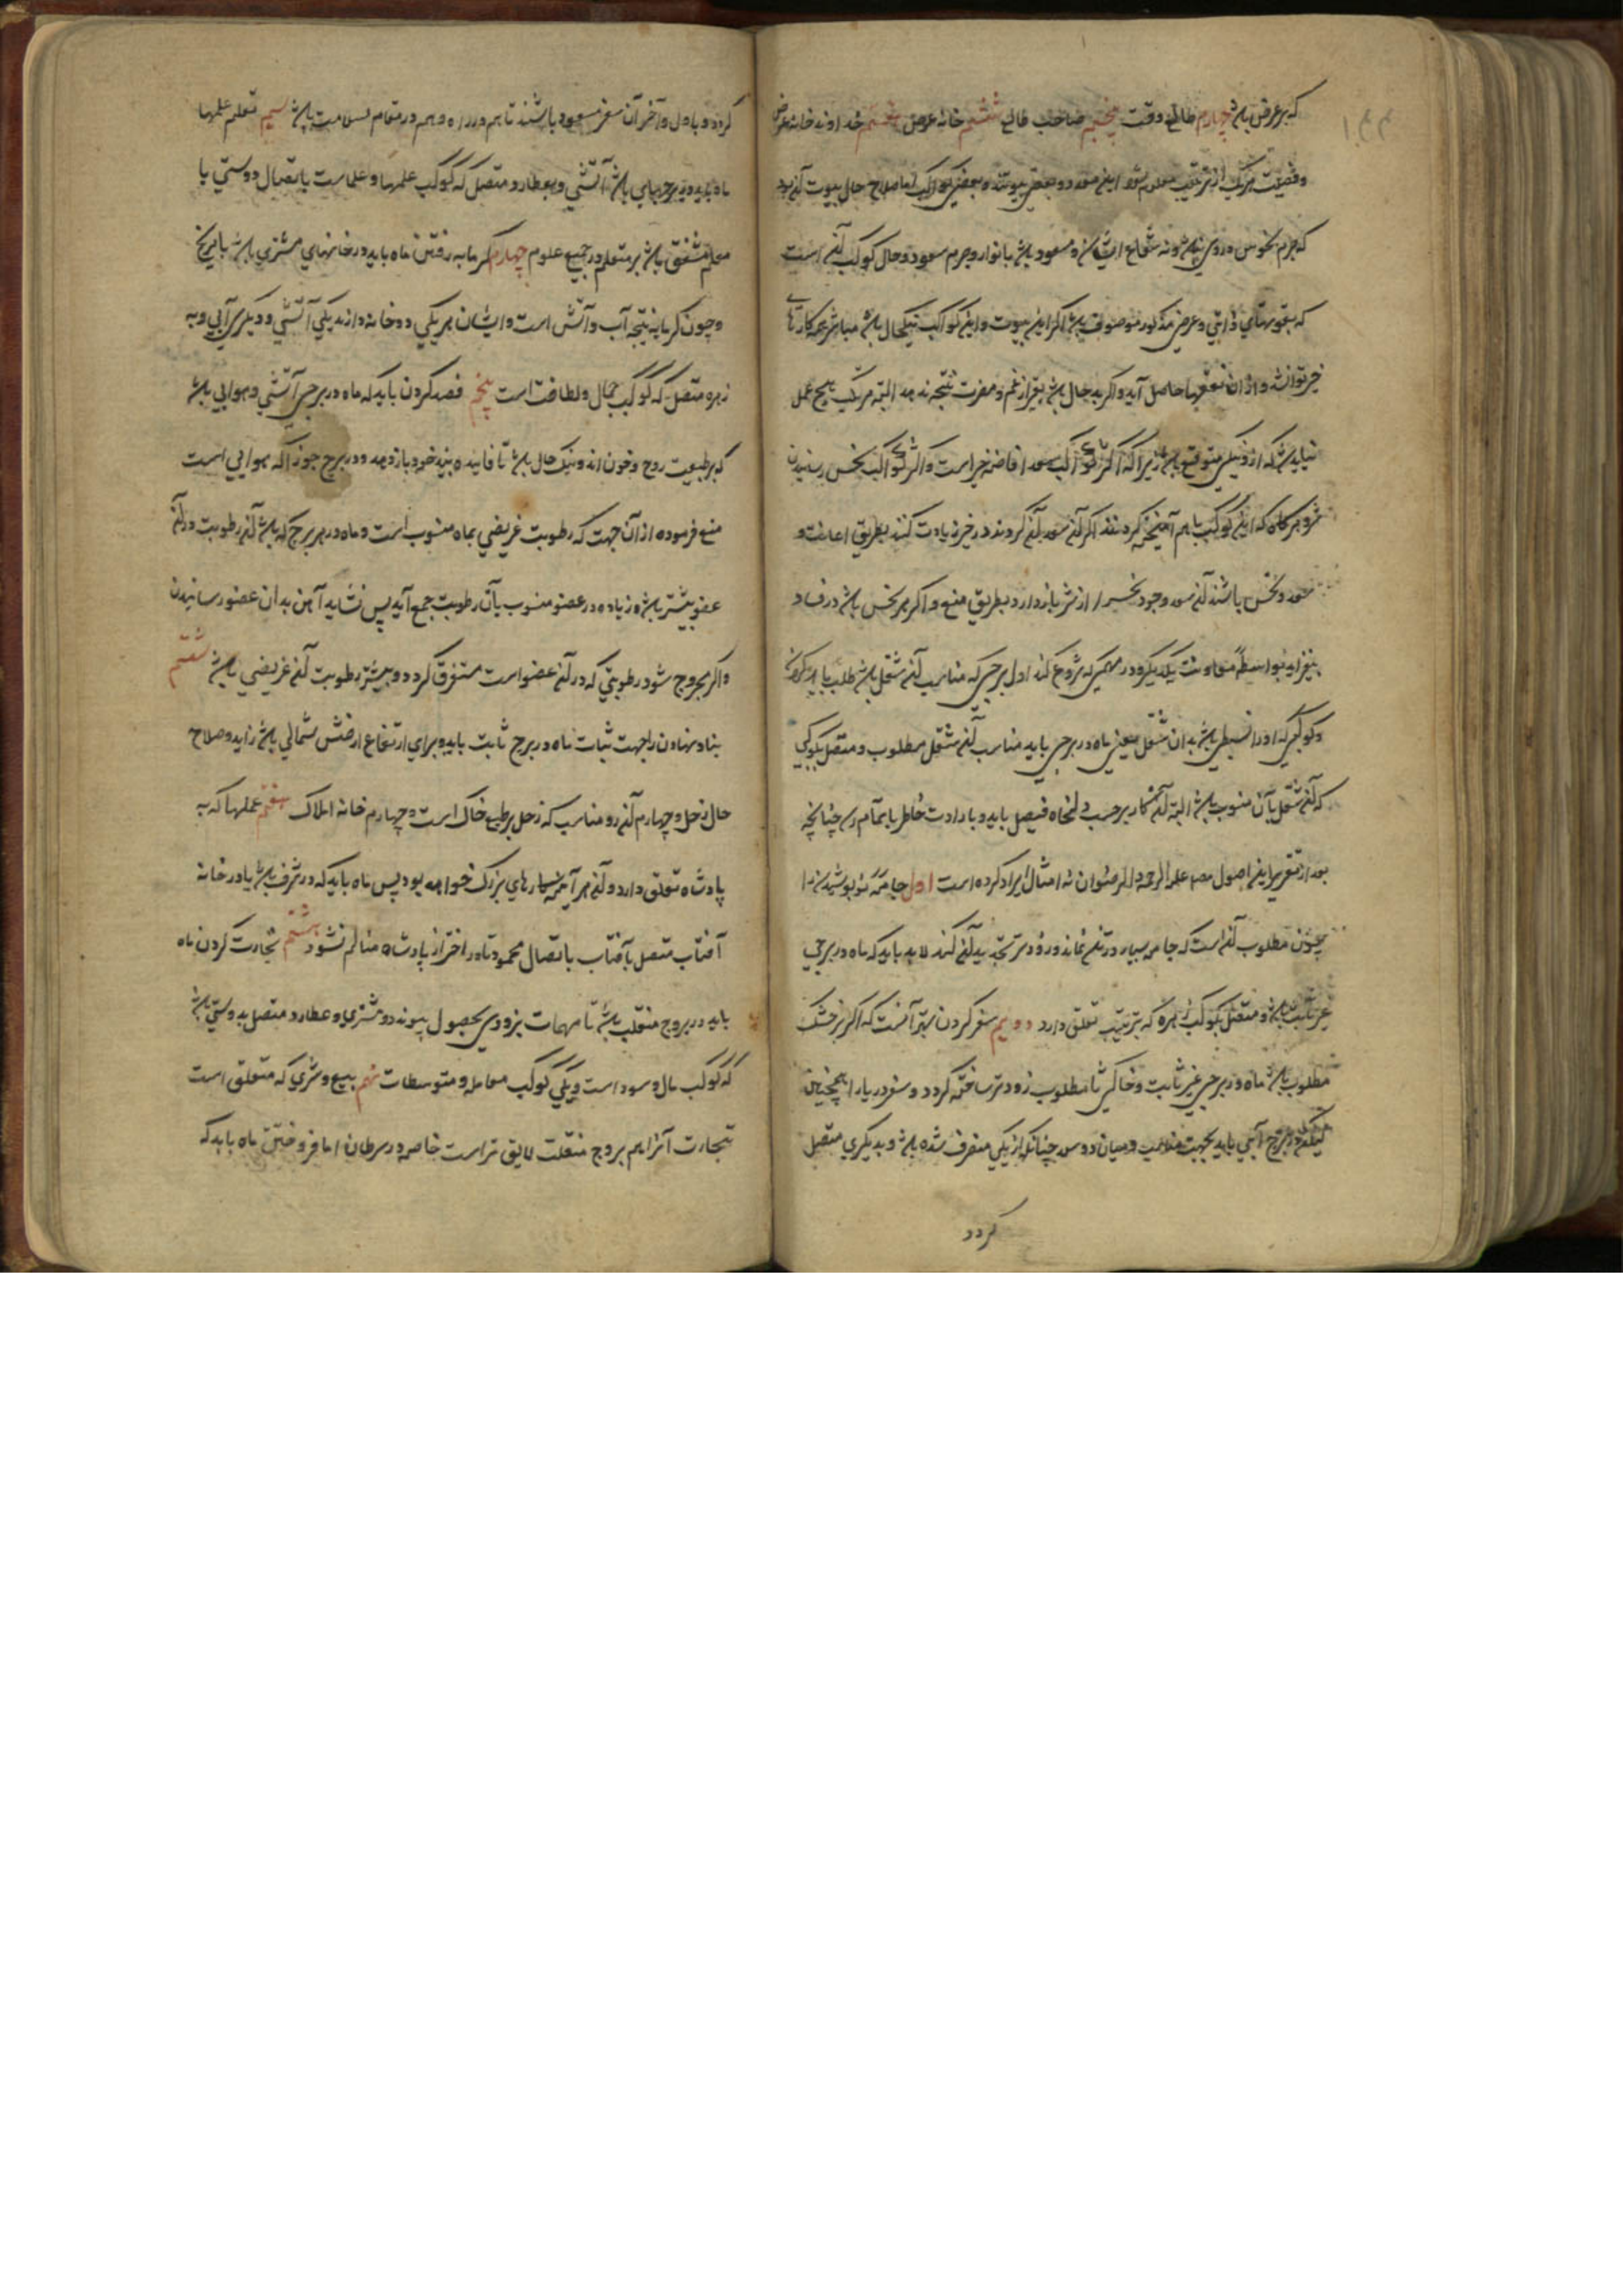 که بر عرض باشد چهارم طالع وقت پنجم صاحب طالع ششم خانه غرض هفتم خداوند خانه غرض
که جرم نحوس در وی نباشد و نه شعاع ایشان و مسعود باشد بانوار و جرم سعود و حال کوکب آنست
که بقوتهای ذاتی و عرضی مذکور موصوف باشد اکر این بیوت و این کواکب نیکحال باشد مباشر همه کارها
خیر توانشد و از ان نفعها حاصل آید و اکر بد حال باشد بغیر از غم و مضرت نتیجه ندهد البته مرتکب هیچ عمل
نباید شد که از و نیکی متوقع باشد زیرا که اکثر کواکب سعد افاضه خیر است و اثر کواکب نحس رسانیدن
شر و هرکاه که این کواکب باهم آمیخته کردند اکر آن سعد کردند در خیر زیادت کنند بطریق اعانت و
سعد و نحس باشند آن سعد وجود نحس را از شر باز دارد بطریق منع و اکر هر نحس باشد در فساد
بیفزاید بواسطه معاونت یکدیکر و در مهمی که شروع کند اول برجی که مناسب آن شغل باشد طلب باید کرد
و کوکبی که او را تسلطی باشد بدان شغل یعنی ماه در برجی باید مناسب آن شغل مطلوب و متصل بکوکبی
که آن شغل بآن منسوب باشد البته آن کار بر حسب دلخواه فیصل یابد و بارادت خاطر باتمام رسد چنانچه
بعد از تقریر این اصول مصنف علیه الرحمه و الرضوان نه امثال ایراد کرده است اول جامه نو پوشیدن را
چون مطلوب آنست که جامه بسیار در تن نماند و زودتر تجدید آن کنند لابد باید که ماه در برجی
غیر ثابت باشد و متصل بکوکب زهره که بزینت تعلق دارد دویم سفر کردن بهتر آنست که اکر بر خشک
مطلوب باشد ماه در برجی غیر ثابت و خاکی تا مطلوب زودتر ساخته کردد و سفر دریا را همچنین
لیکن در برج آبی باید بجهت مناسبت و میان دو سعد چنانکه از یکی منصرف شده باشد و بدیکری متصل
کردد
کردد و باول و آخر آن سفر مسعود باشند تا هم در راه و هم در مقام بسلامت باشد سیم تعلم علمها
ماه باید در برجهای باشد آتشی و بعطارد متصل که کوکب علمها و علماست باتصال دوستی با
معلم مشفق باشد بر متعلم در جمیع علوم چهارم کرمابه رفتن ماه باید در خانهای مشتری باشد یا مریخ
و چون کرمابه نتیجه آب و آتش است و ایشان هر یکی دو خانه دارند یکی آتشی و دیکری آبی و به
زهره متصل که کوکب جمال و لطافت است پنجم فصد کردن باید که ماه در برجی آتشی و هوایی باشد
که بر طبیعت روح و خون اند و نیک حال باشد تا فایده بنیه خود باز دهد و در برج جوزا که هوایی است
منع فرموده از آن جهت که رطوبت غریضی بماه منسوب است و ماه در هر برج که باشد آن رطوبت در آن
عضو بیشتر باشد و زیاده در عضو منسوب بآن رطوبت جمع آید پس نشاید آهن بدان عضو رسانیدن
و اکر مجروح شود رطوبتی که در آن عضو است متفرق کردد و بیشتر رطوبت آن غریضی باشد ششم
بنا و نهادن را جهت ثبات ماه در برج ثابت باید و برای ارتفاع ارضش شمالی باشد زاید و صلاح
حال زحل و چهارم آن رو مناسب که زحل بر طبع خاک است و چهارم خانه املاک هفتم عملها که به
پادشاه تعلق دارد و آن هر آینه کارهای بزرک خواهد بود پس ماه باید که در شرف باشد یا در خانه
آفتاب متصل بآفتاب باتصال محمود تا در اختر از پادشاه متالم نشود هشتم تجارت کردن ماه
باید در بروج منقلب باشد تا مهمات بزودی بحصول پیوندد و مشتری و عطارد متصل بدوستی باشد
که کوکب مال و سود است و یکی کوکب معامله و متوسطات نهم بیع و شری که متعلق است
تجارت آنرا هم بروج منقلب لایق تر است خاصه در سرطان اما فروختن ماه باید که